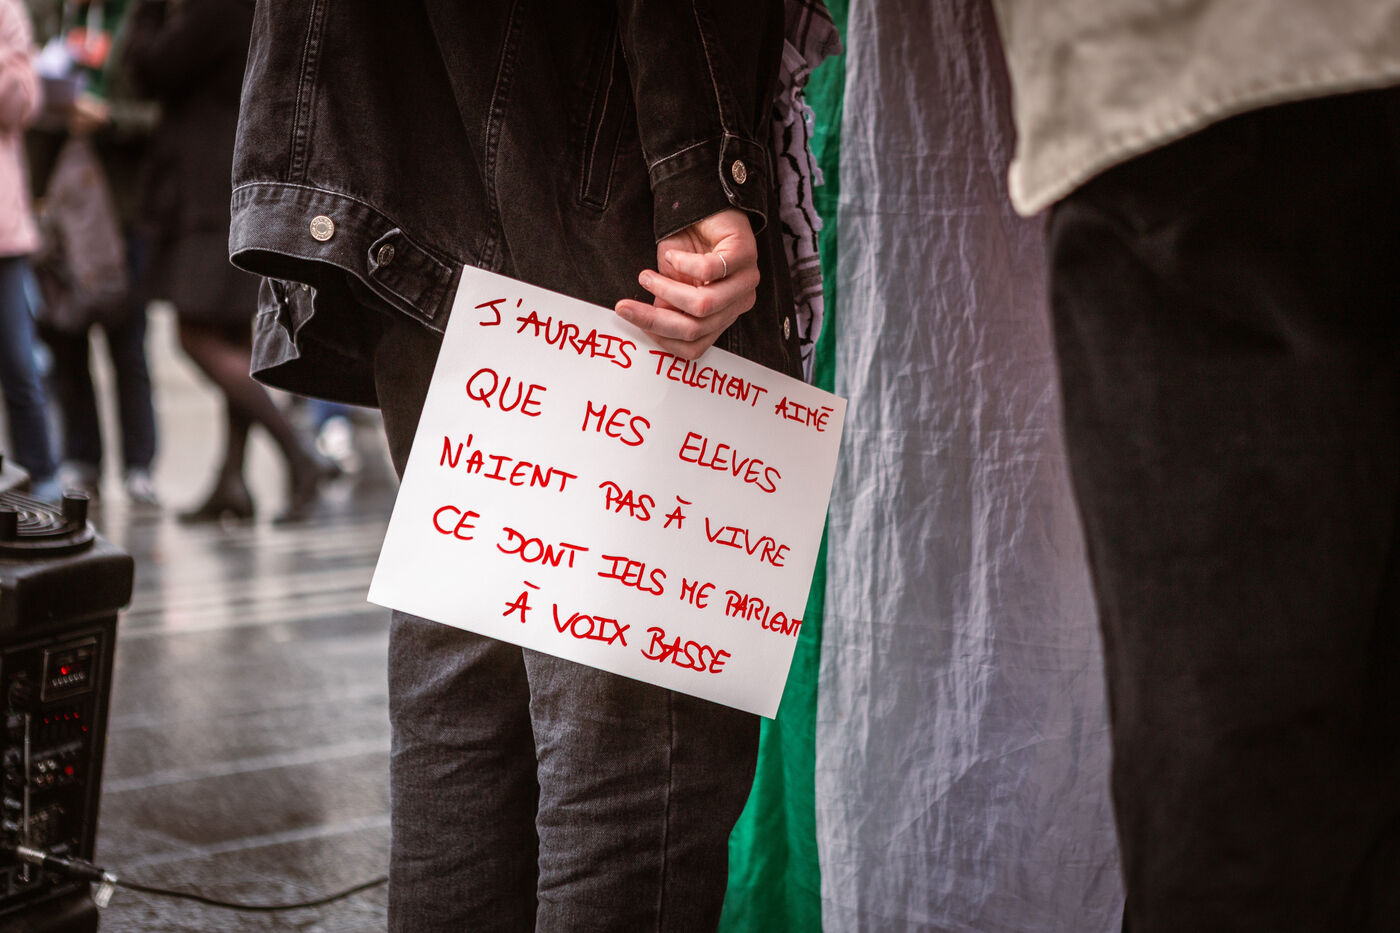 J'AURAIS TELLEMENT AIMÉ
QUE MES ELEVES
N'AIENT PAS À VIVRE
CE DONT IELS ME PARLENT
À VOIX BASSE